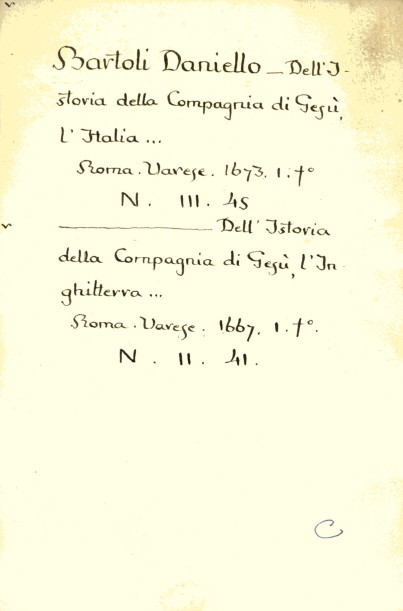 Bartoli Daniello — Dell'I-
storia della Compagnia di Gesù,
l'Italia ...
Roma. Varese. 1673. 1. fo
N. III. 45
——— Dell'Istoria
della Compagnia di Gesù, l'In-
ghilterra ...
Roma. Varese. 1667. 1. fo.
N. II. 41.
C